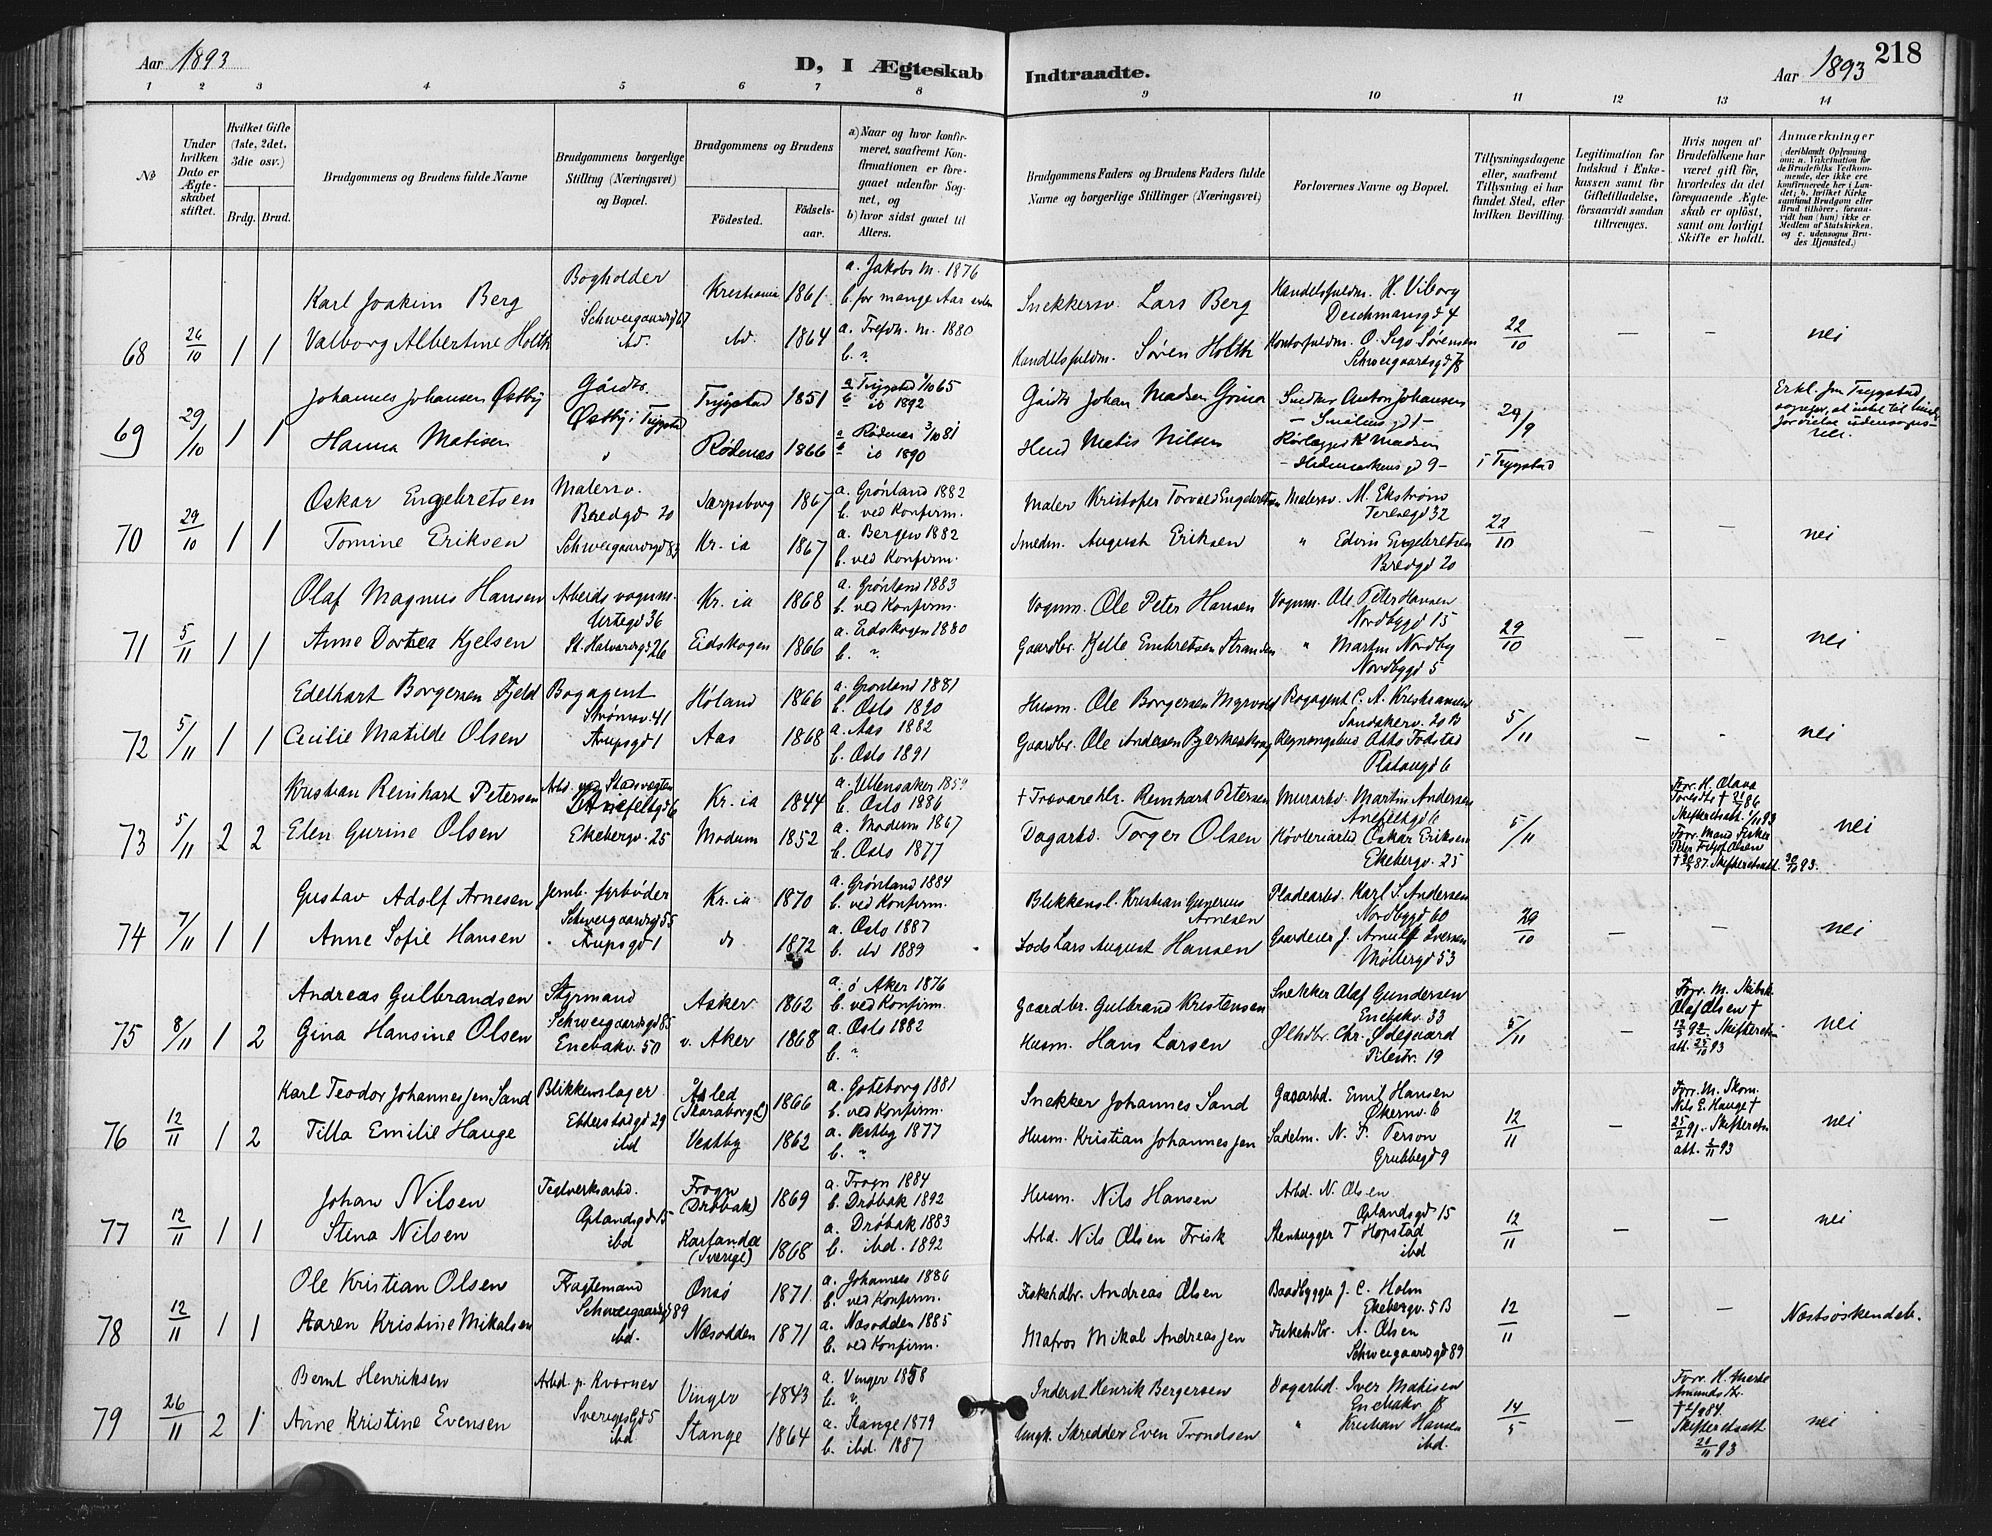 Aar 1893
D, I Ægteskab Indtraadte.
Aar 1893
218
1 2 3 4 5 6 7 8 9 10 11 12 13 14
No
Under hvilken Dato er Ægteskabet stiftet.
Hvilket Gifte (1ste, 2det, 3die osv.)
Brdg. Brud.
Brudgommens og Brudens fulde Navne
Brudgommens borgerlige Stilling (Næringsvei) og Bopæl.
Brudgommens og Brudens
Fødested.
Fødselsaar.
a) Naar og hvor konfirmeret, saafremt Konfirmationen er foregaaet udenfor Sognet, og
b) hvor sidst gaaet til Alters.
Brudgommens Faders og Brudens Faders fulde Navne og borgerlige Stillinger (Næringsvei)
Forlovernes Navne og Bopæl.
Tillysningsdagene eller, saafremt Tillysning ei har fundet Sted, efter hvilken Bevilling.
Legitimation for Indskud i Enkekassen samt for Giftetilladelse, forsaavidt saadan tiltrænges.
Hvis nogen af Brudefolkene har været gift før, hvorledes da det foregaaende Ægteskab er opløst, samt om lovligt Skifte er holdt.
Anmærkninger
(deriblandt Oplysning om: a. Vakcination for de Brudefolks Vedkommende, der ikke ere konfirmerede her i Landet; b. hvilket Kirkesamfund Brudgom eller Brud tilhører, forsaavidt han (hun) ikke er Medlem af Statskirken, og c. udensogns Brudes Hjemsted.)
68 26/10 1 1
Karl Joakim Berg Bogholder Schweigaardsgd 67 Kristiania 1861 a. Jakobs M. 1876 b. for mange Aar siden Snekkersv. Lars Berg Handelsfuldm. H. Viborg Deichmansgd 4
Valborg Albertine Holth ibd. ibd. 1864 a. Trefdh. m. 1880 b. " Handelsfuldm. Søren Holth Kontorfuldm. O. Sørensen Schweigaardsgd 78 22/10 – – nei
69 29/10 1 1
Johannes Johansen Østby Gårdbr. Østby i Trygstad Trygstad 1851 a 65 b 1892 Gårdbr Johan Madsen Snedker Anton Johansen – Smalensgd 1 – 24/9 i Trygstad
Hanna Matisen " Rødenæs 1866 a Rødenæs 3/10 81 b 1890 Matis Nilsen Kørlægger K Madsen – Hedemarkens gd 9 –
70 29/10 1 1
Oskar Engebretsen Malersv. Bredgd 20 Sarpsborg 1867 a. Grønland 1882 b. ved Konfirm. Maler Kristofer Torvald Engebretsen Malersv. M. Ekstrøm Teresegd 32
Tomine Eriksen Schweigaardsgd 83 Kr.ia 1867 a. Bergen 1882 b. ved Konfirm. Smedm. August Eriksen " Edvin Engebretsen Bredgd 20 22/10 – – nei
71 5/11 1 1
Olaf Magnus Hansen Arbeids vognm. Urtegd 36 Kr.ia 1868 a. Grønland 1883 b. ved Konfirm. Vognm. Ole Peter Hansen Vognm. Ole Peter Hansen Nordbygd 15
Anne Dortea Kjelsen St. Halvardsgd 26 Eidskogen 1866 a. Eidskogen 1880 b. " Gaardbr. Kjelle Embretsen Stranden " Martin Nordby Nordbygd 5 29/10 – – nei
72 5/11 1 1
Edelhart Borgersen Fjeld Bogagent Strømsv. 41 Høland 1866 a. Grønland 1881 b. Oslo 1890 Husm. Ole Borgersen Myrvold Bogagent C. A. Kristiansen Sandakerv. 20 B
Cecilie Matilde Olsen Arupsgd 1 Aas 1868 a. Aas 1882 b. Oslo 1891 Gaardbr. Ole Andersen Bjerkeskaug Otto Fodstad Platougd 6 5/11 – - nei
73 5/11 2 2
Kristian Reinhart Petersen Arb. ved Stadsvegten Anefeltgd 6 Kr.ia 1844 a. Ullensaker 1859 b. Oslo 1886 † Reinhart Petersen Murarbd. Martin Andersen Anefeltgd 6 5/11
Elen Gurine Olsen Ekebergv. 25 Modum 1852 a. Modum 1867 b. Oslo 1877 Dagarbd. Torger Olsen Høvleriarbd Oskar Eriksen Ekebergv. 25 Forr. H. Olava † 86 Forr. Mand Fisker Peter Olsen † 87. Skifteretsatt. 93. nei
74 7/11 1 1
Gustav Adolf Arnesen Jernb. fyrbøder Schweigaardsgd 55 Kr.ia 1870 a. Grønland 1884 b. ved Konfirm. Blikkensl. Kristian Gunerius Arnesen Pladearbd. Karl S. Andersen Nordbygd 60
Anne Sofie Hansen " Arupsgd 1 do 1872 a. Oslo 1887 b. do 1889 Lods Lars August Hansen Gaardeier J. Arnulf Iversen Møllergd 53 29/10 – – nei
75 8/11 1 2
Andreas Gulbrandsen Styrmand Schweigaardsgd 85 Asker 1862 a. ø Aker 1876 b. ved Konfirm. Gaardbr. Gulbrand Kristensen Snekker Olaf Gundersen Enebakv. 33
Gina Hansine Olsen Enebakv. 50 v. Aker 1868 a. Oslo 1882 b. " Husm. Hans Larsen Ølhdbr. Chr. Ødegaard Pilestr. 19 5/11 – Forr. M. Olaf Olsen † 92 Skifteretsatt. 93 nei
76 12/11 1 2
Karl Teodor Johannessen Sand Blikkenslager Ebberstadgd 29 Åsled (Skaraborg L) 1866 a. Gøteborg 1881 b. ved Konfirm. Snekker Johannes Sand Gasarbd. Emil Hansen Økernv. 6
Tilla Emilie Hauge ibd Vestby 1862 a. Vestby 1877 b. " Husm. Kristian Johannessen Sadelm. N. P. Person Grubbegd 9 12/11 – Forr. M. Skom. Nils E. Hauge † 25/2 91. Skifteretsatt. 93 nei
77 12/11 1 1
Johan Nilsen Teglverksarbd. Oplandsgd 15 Frogn (Drøbak) 1869 a. Frogn 1884 b. Drøbak 1892 Husm. Nils Hansen Arbd. N. Olsen Oplandsgd 15
Stena Nilsen ibd Karlanda (Sverige) 1868 a. Drøbak 1883 b. ibd. 1892 Arbd. Nils Olsen Frisk Stenhugger T Hopstad ibd 12/11 – – nei
78 12/11 1 1
Ole Kristian Olsen Fragtemand Schweigaardsgd 89 Onsø 1871 a. Johannes 1886 b. ved Konfirm. Fiskehdbr. Andreas Olsen Baadbygger J. C. Holm Ekebergv. 5 B
Karen Kristine Mikalsen ibd. Næsodden 1871 a. Næsodden 1885 b. ved Konfirm. Matros Mikal Andreassen Fiskehdbr. A. Olsen Schweigaardsgd 89 12/11 – – Næstsøskendeb.
79 26/11 2 1
Bernt Henriksen Arbd. p. Kværner Sverigesgd 5 Vinger 1843 a. Vinger 1858 b. " Inderst Henrik Bergersen Dagarbd. Iver Matisen Enebakv.
Anne Kristine Evensen ibd Stange 1864 a. Stange 1879 b. ibd. 1887 Ungk. Skredder Even Trondsen " Kristian Hansen ibd. 14/5 – Forr. H. Skifteretsatt 93 nei